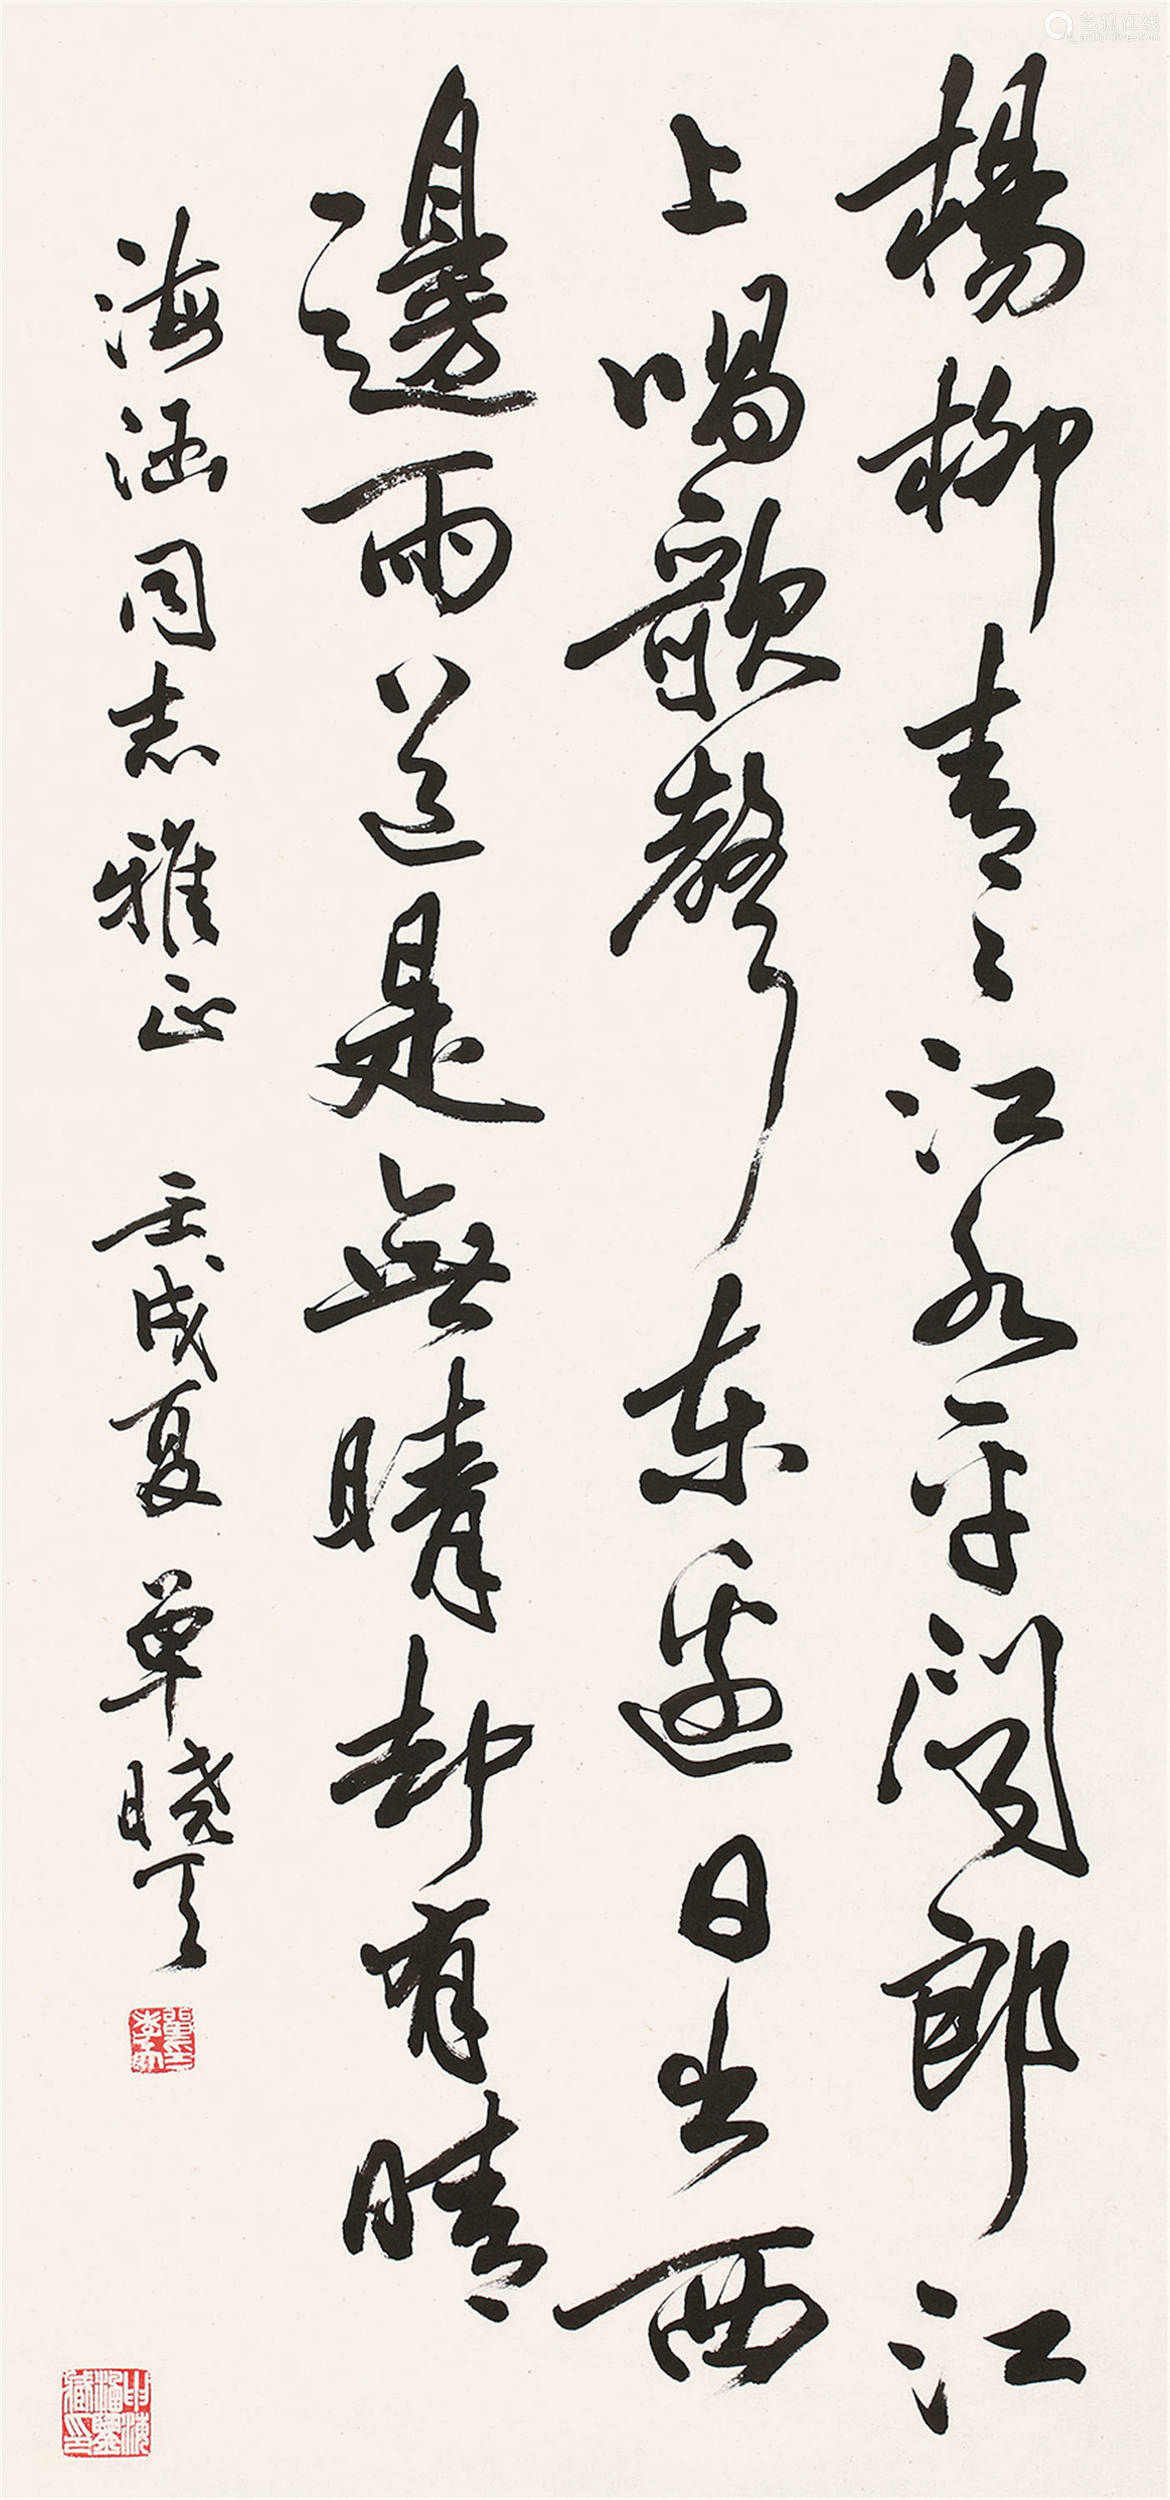 楊柳青〻江水平闻郎江
上唱歌聲东边日出西
邊雨道是無晴却有晴
海涵同志雅正 壬戌夏 单晓天